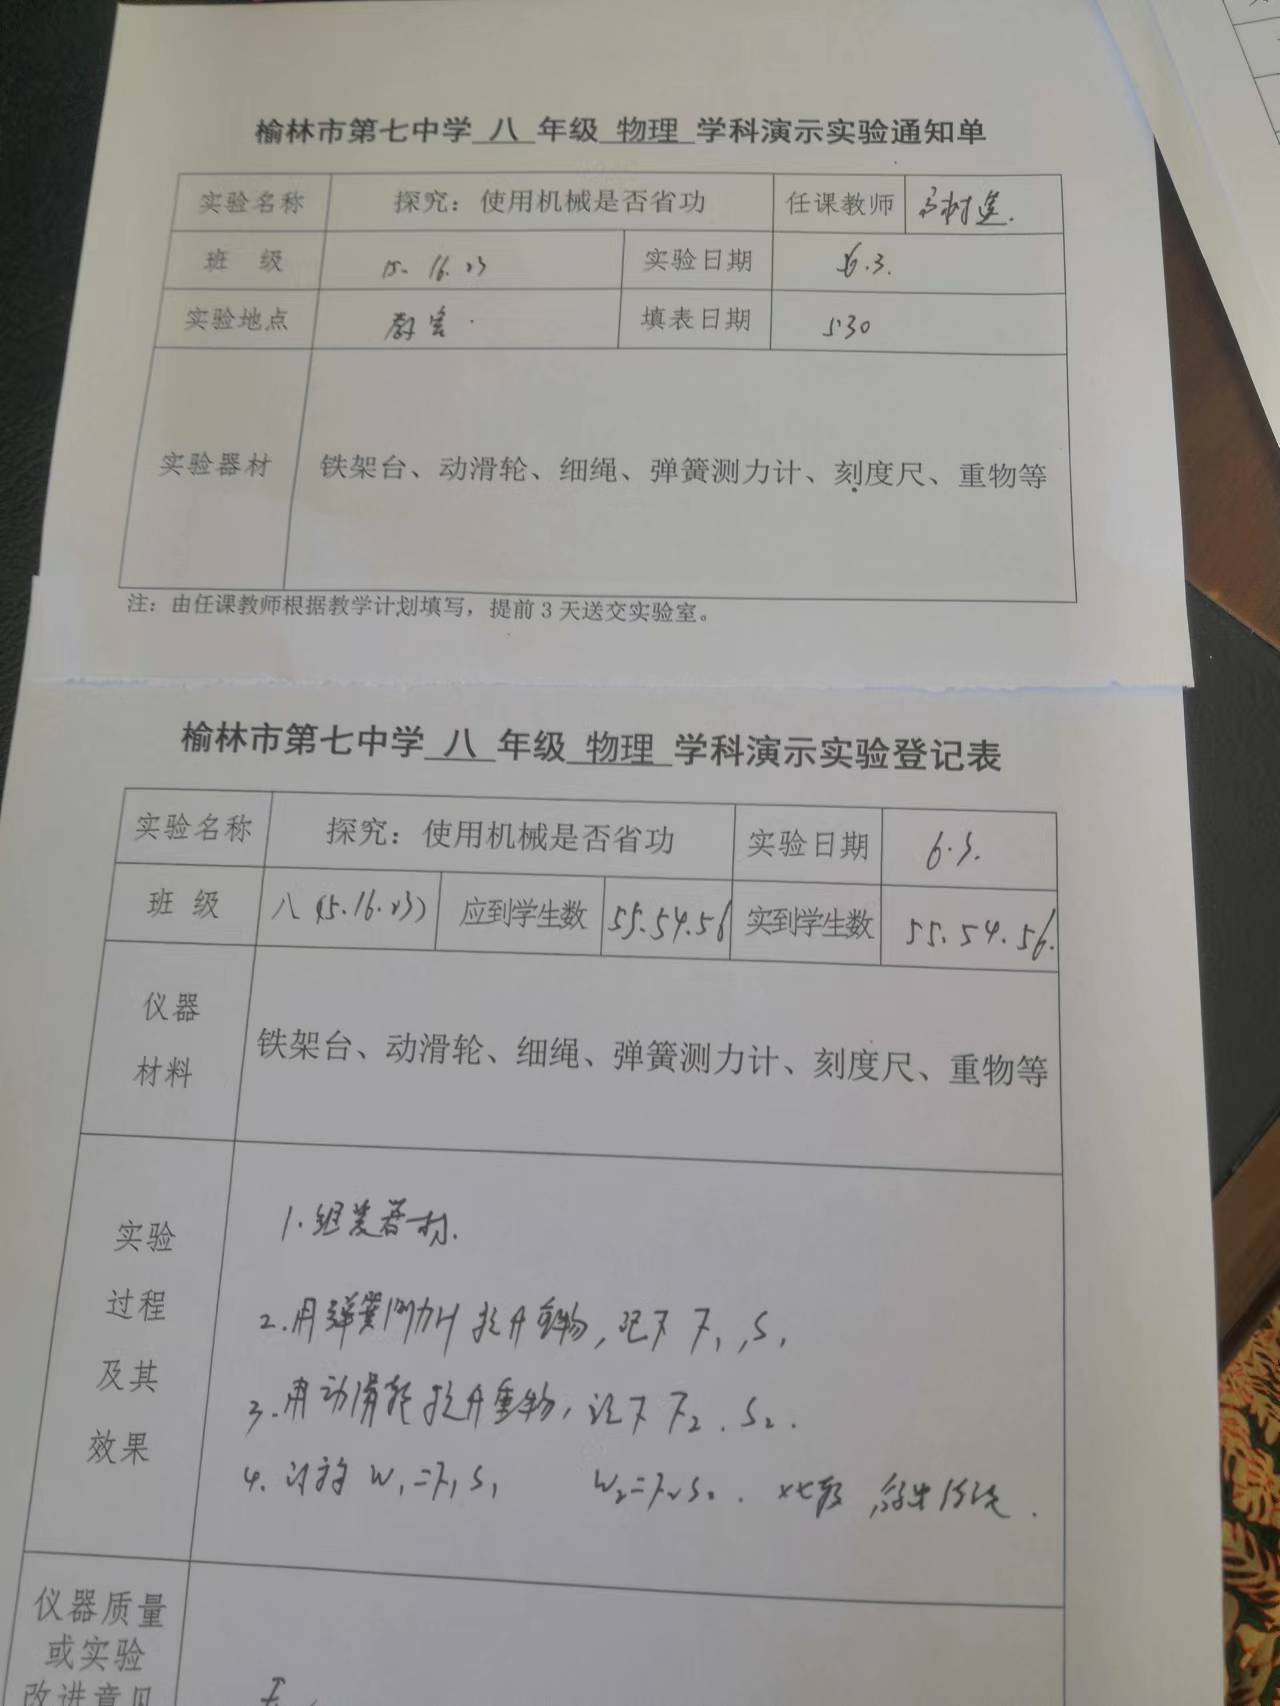 榆林市第七中学 八 年级 物理 学科演示实验通知单
实验名称 探究：使用机械是否省功 任课教师
班 级 15. 16. 23 实验日期 6.3.
实验地点 教室. 填表日期 5.30
实验器材 铁架台、动滑轮、细绳、弹簧测力计、刻度尺、重物等
注：由任课教师根据教学计划填写，提前 3 天送交实验室。
榆林市第七中学 八 年级 物理 学科演示实验登记表
实验名称 探究：使用机械是否省功 实验日期 6.3.
班 级 八（15.16.23） 应到学生数 55.54.56 实到学生数 55.54.56.
仪器
材料
铁架台、动滑轮、细绳、弹簧测力计、刻度尺、重物等
实验
过程
及其
效果
1.组装器材.
2.用弹簧测力计拉升重物，记下F₁,S₁
3.用动滑轮拉升重物，记下F₂.S₂.
4.计算W₁=F₁S₁ W₂=F₂S₂. 对比较，得出结论.
仪器质量
或实验
改进意见
无